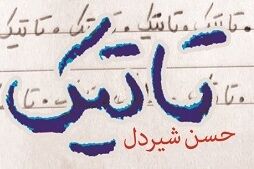 تا تیک . تا تیک . تا تیک . تا تیک
تاتیک
حسن شیردل